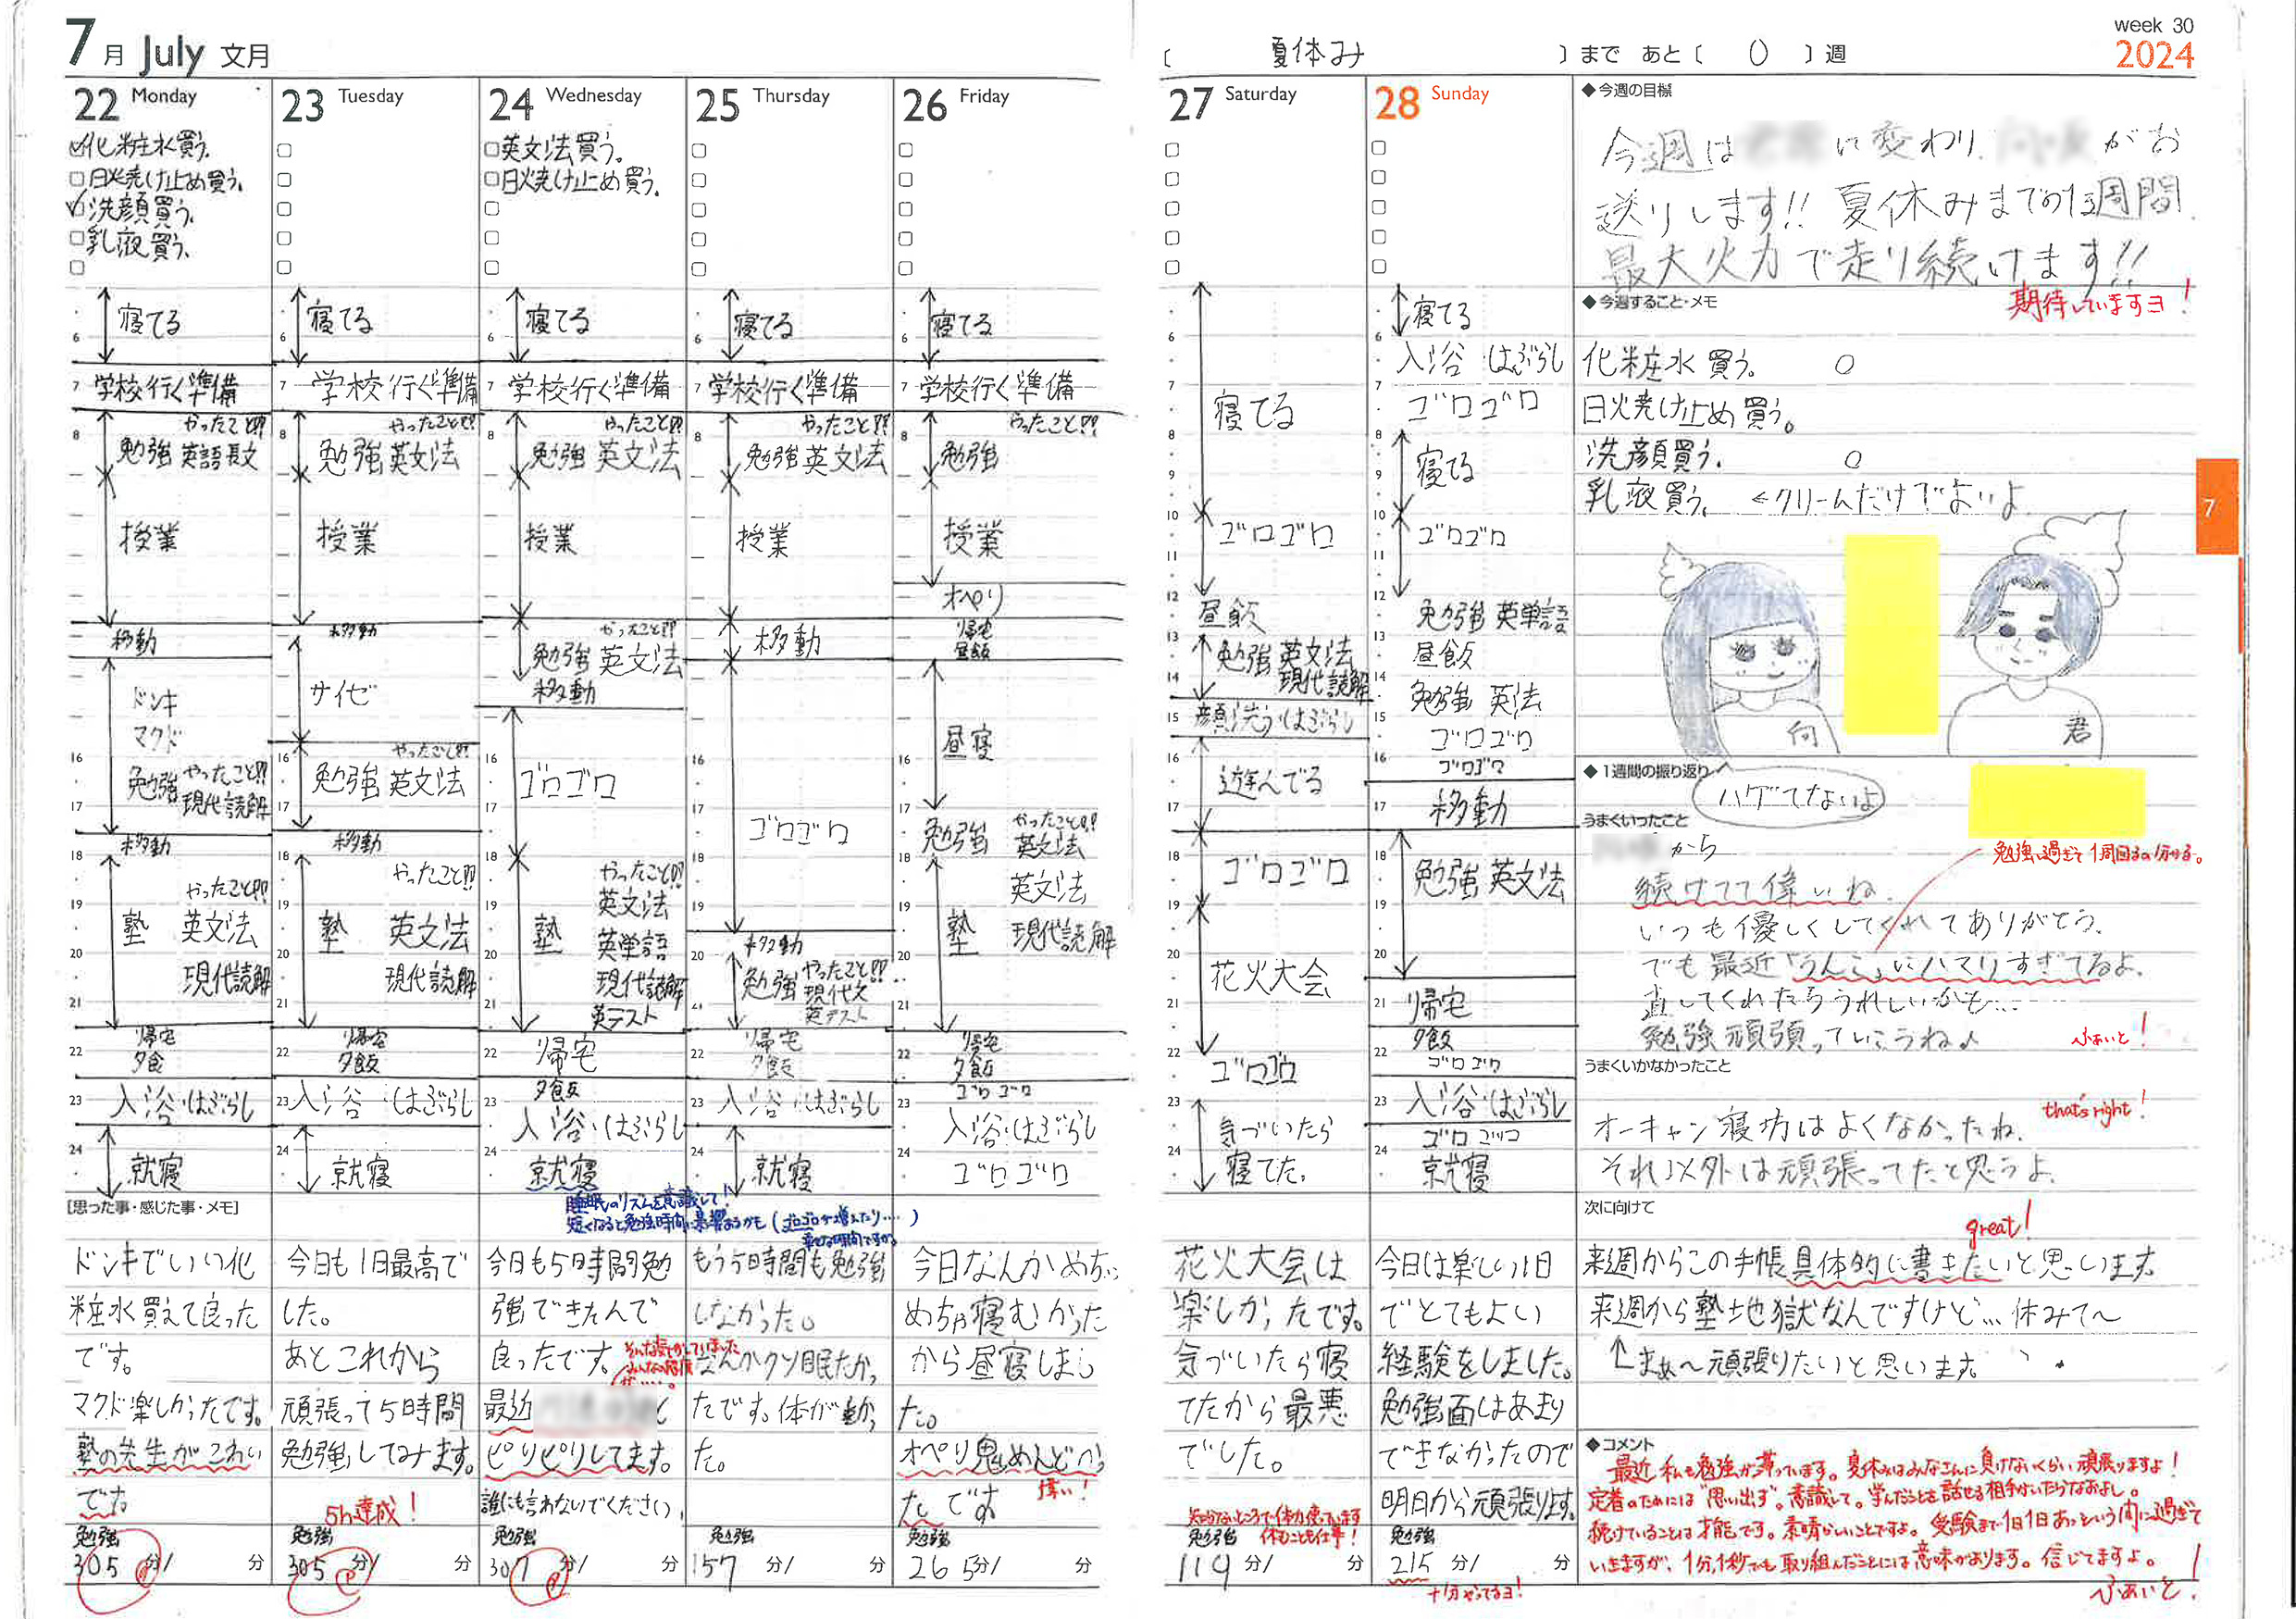 7月 July 文月
22 Monday
☑化粧水買う。
☐日火焼け止め買う。
☑洗顔買う。
☐乳液買う。
☐
寝てる
6
7 学校行く準備
やったこと!?
8
勉強 英語長文
授業
移動
ドンキ
マクド
16
勉強 やったこと!?
現代読解
17
移動
18
やったこと!?
19
塾 英文法
20
現代読解
21
帰宅
22
夕食
23 入浴・はぶらし
24
就寝
[思った事・感じた事・メモ]
ドンキでいい化
粧水買えて良った
です。
マクド楽しかったです。
塾の先生がこわい
です
勉強
305 分/ 分
23 Tuesday
寝てる
6
7 学校行く準備
やったこと!?
8
勉強 英文法
授業
移動
サイゼ
やったこと!?
16
勉強 英文法
17
移動
18
やったこと!?
19
塾 英文法
20
現代読解
21
帰宅
22
夕飯
23 入浴・はぶらし
24
就寝
今日も1日最高で
した。
あとこれから
頑張って5時間
勉強してみます。
5h達成!
勉強
305 分/ 分
24 Wednesday
☐英文法買う。
☐日火焼け止め買う。
寝てる
6
7 学校行く準備
やったこと!?
8
勉強 英文法
授業
やったこと!?
勉強 英文法
移動
16
ゴロゴロ
17
18
やったこと!?
英文法
19
塾 英単語
20
現代読解
21
英テスト
22 帰宅
夕食
23
入浴・はぶらし
24
就寝
睡眠のリズムを意識して!
短くなると勉強時間に影響あるかも(ゴロゴロが増えたり……)
今日も5時間勉
強できたんで
良ったです。
最近
ピリピリしてます。
誰にも言わないでください、
勉強
307 分/ 分
25 Thursday
寝てる
6
7 学校行く準備
やったこと!?
8
勉強 英文法
授業
移動
16
17
ゴロゴロ
18
19
移動
20
勉強 やったこと!?
現代文
21
英テスト
帰宅
22
夕飯
23 入浴・はぶらし
24
就寝
もう5時間も勉強
しなかった。
なんかクソ眠たか,
たです。体が動,
た。
勉強
157 分/ 分
26 Friday
寝てる
6
7 学校行く準備
やったこと!?
8
勉強
授業
オペリ
帰宅
昼飯
16
昼寝
17
やったこと!?
勉強 英文法
18
英文法
19
塾 現代読解
20
21
帰宅
22
夕飯
ゴロゴロ
23
入浴・はぶらし
24
ゴロゴロ
今日なんかめちゃ
めちゃ寝むかった
から昼寝しまし
た。
オペリ鬼めんどかっ
たです
偉い!
勉強
265分/ 分
[ 夏休み ]まで あと[ 0 ]週
week 30
2024
27 Saturday
6
7
寝てる
8
9
10
ゴロゴロ
11
12
昼飯
13
勉強 英文法
現代読解
14
15 顔洗う・はぶらし
16
遊んでる
17
18
ゴロゴロ
19
20
花火大会
21
22
ゴロゴロ
23
気づいたら
24
寝てた。
花火大会は
楽しかったです。
気づいたら寝
てたから最悪
でした。
知らないところで体力使っています
休むことも仕事!
勉強
119 分/ 分
28 Sunday
寝てる
6
入浴・はぶらし
7
ゴロゴロ
8
9
寝てる
10
ゴロゴロ
11
12
勉強 英単語
13
昼飯
14
勉強 英法
15
ゴロゴロ
16
ゴロゴロ
17 移動
18
勉強 英文法
19
20
21 帰宅
夕飯
22
ゴロゴロ
23 入浴・はぶらし
ゴロゴロ
24
就寝
今日は楽しい1日
でとてもよい
経験をしました。
勉強面はあまり
できなかったので
明日から頑張ります。
勉強
215 分/ 分
十分やってるヨ!
◆今週の目標
今週は に変わり、 がお
送りします!! 夏休みまでの1週間
最大火力で走り続けます!!
期待していますヨ!
◆今週すること・メモ
化粧水買う。 ○
日火焼け止め買う。
洗顔買う。 ○
乳液買う。 ←クリームだけでよいよ
向
君
7
◆1週間の振り返り
ハゲてないよ
うまくいったこと
から
勉強し過ぎて1周回るの分かる。
続けてて偉いね。
いつも優しくしてくれてありがとう。
でも最近「うんこ」にハマりすぎてるよ。
直してくれたらうれしいかも…
勉強頑張っていこうね♪
ふぁいと!
うまくいかなかったこと
that's right!
オーキャン寝坊はよくなかったね。
それ以外は頑張ってたと思うよ。
次に向けて
great!
来週からこの手帳具体的に書きたいと思います
来週から塾地獄なんですけど…休みて〜
↑まぁ〜頑張りたいと思います。
◆コメント
最近私も勉強が滞っています。夏休みはみなさんに負けないくらい頑張りますよ!
定着のためには"思い出す"。意識して。学んだことを話せる相手がいたらなおよし。
続けていることは才能です。素晴らしいことですよ。受験まで1日1日あっという間に過ぎて
いきますが、1分、1秒でも取り組んだことには意味があります。信じてますよ。
ふぁいと!